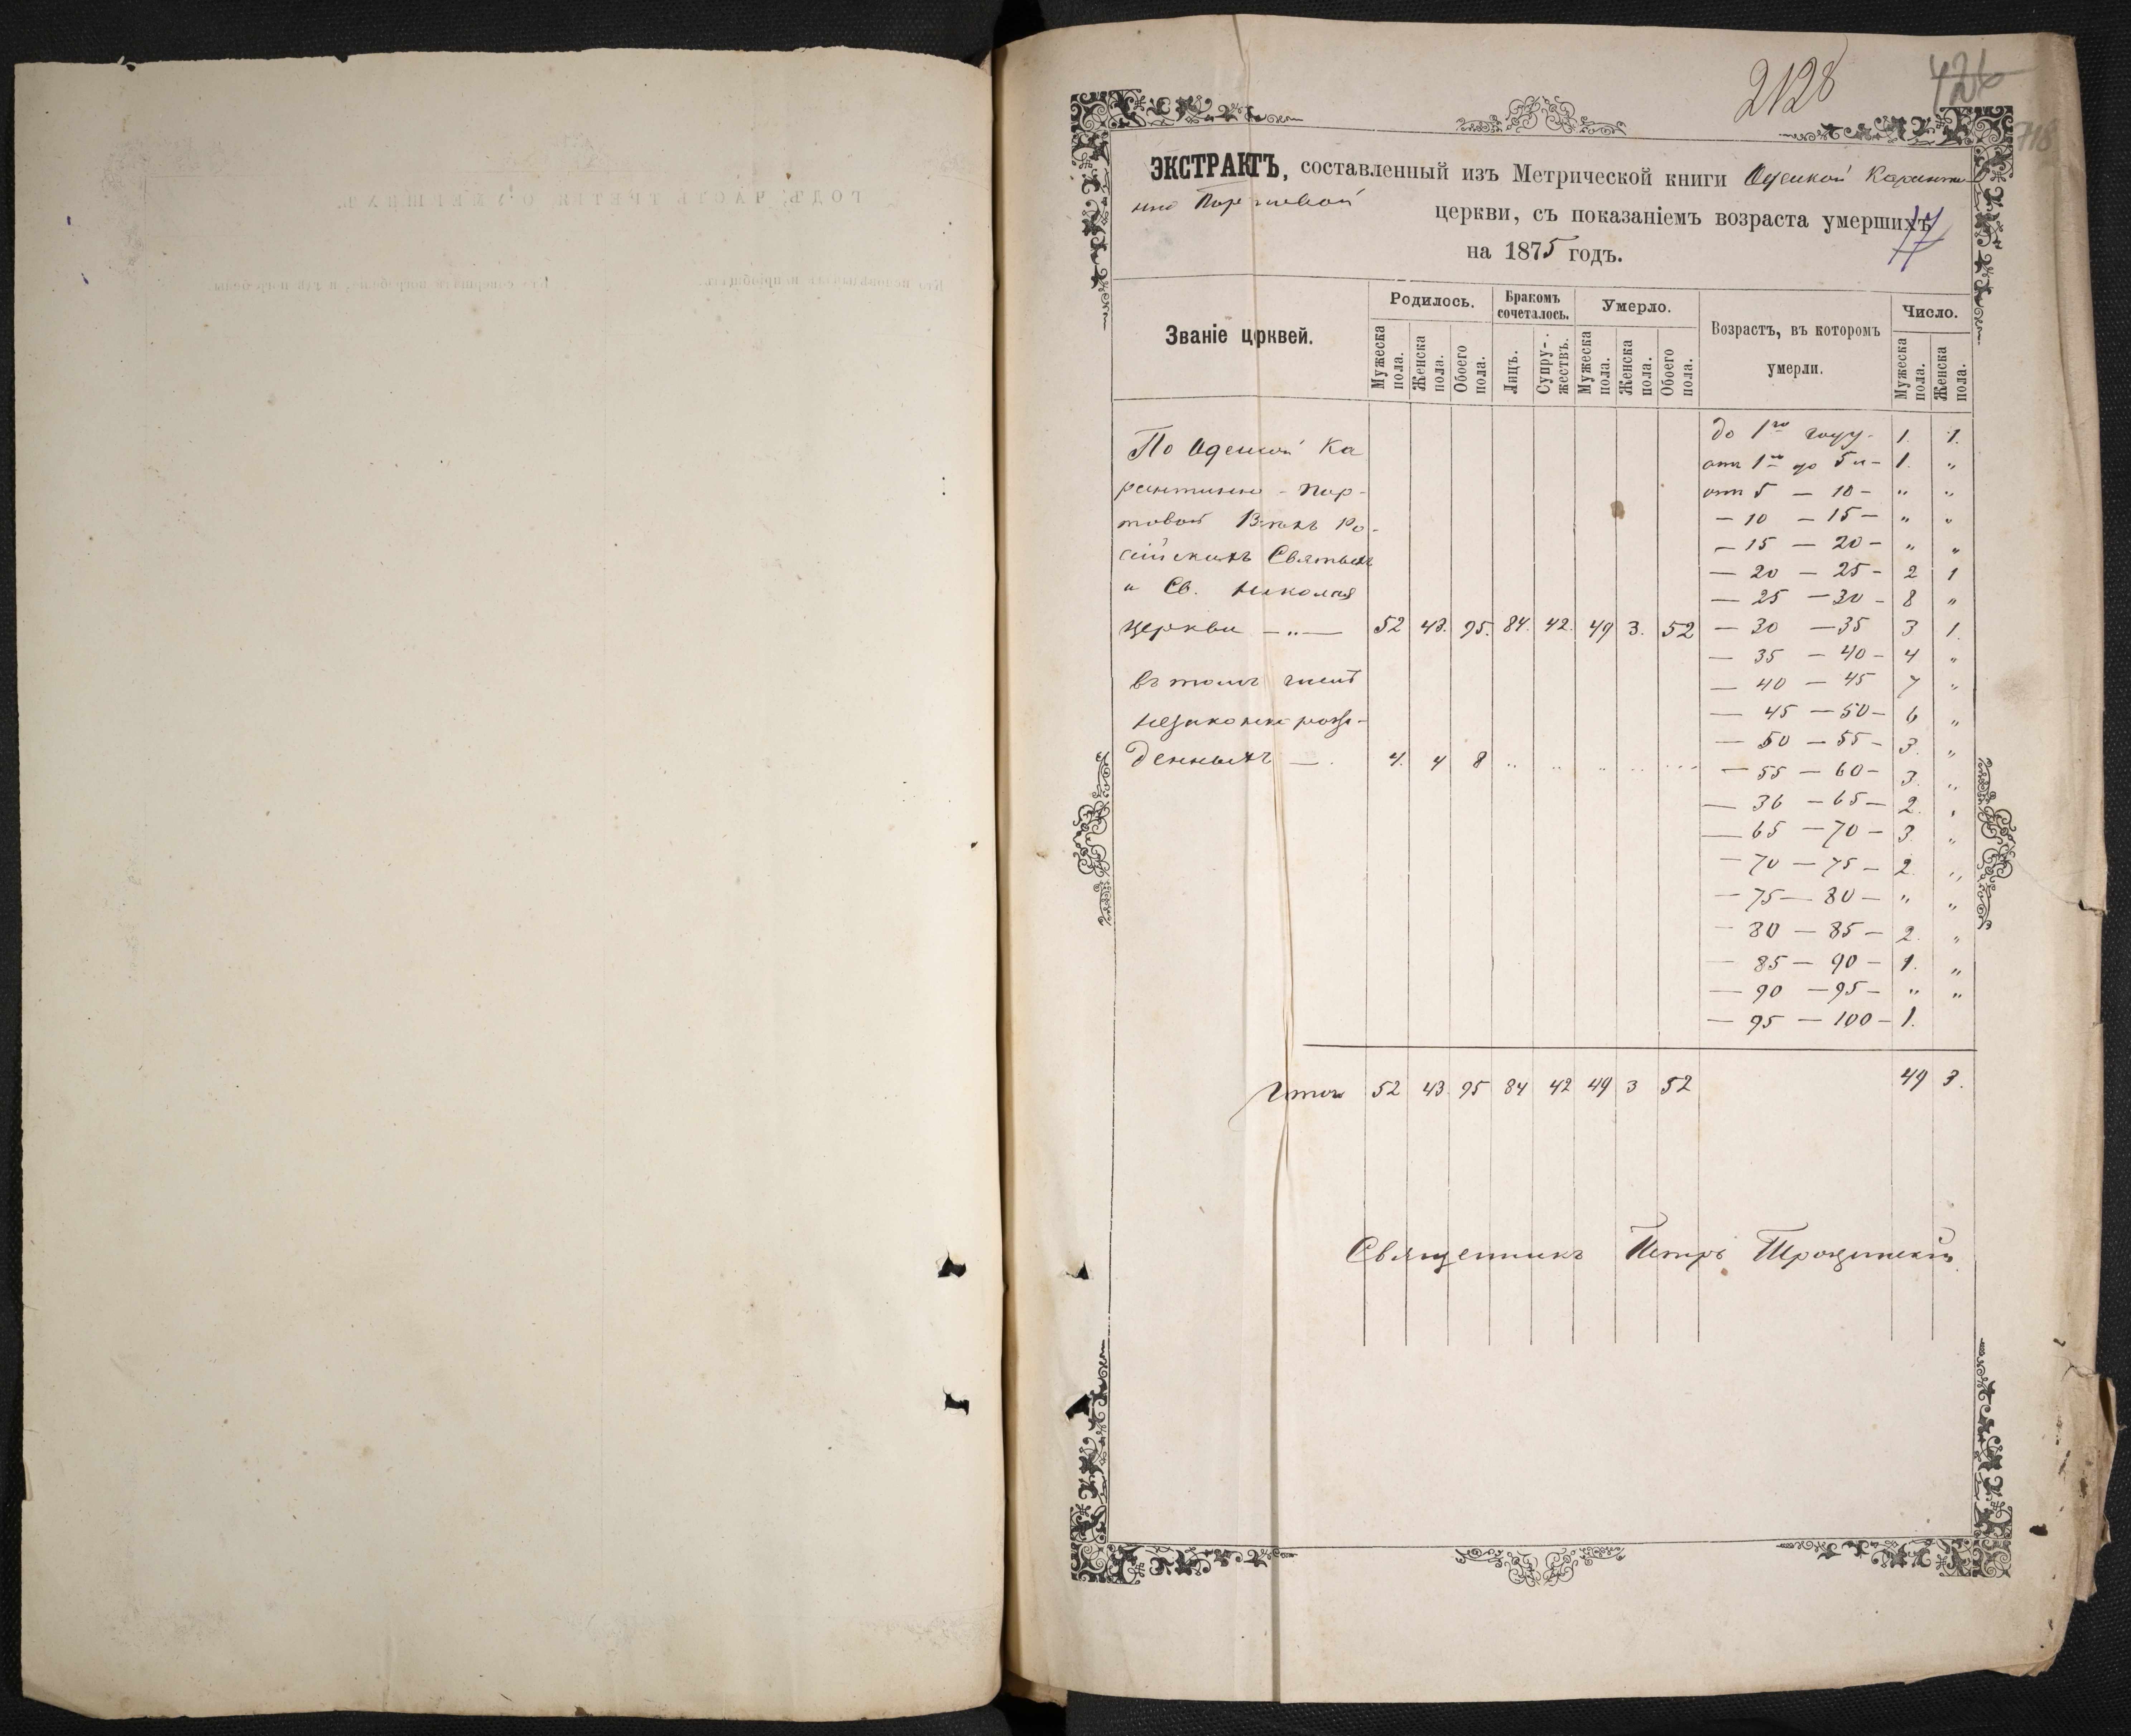 2128
426
718
ЭКСТРАКТЪ, составленный изъ Метрической книги Одеской Карантин
но Портовой церкви, съ показаніемъ возраста умершихъ
17
на 1875 годъ.
Званіе црквей.
Родилось.
Бракомъ сочеталось.
Умерло.
Возрастъ, въ которомъ умерли.
Число.
Мужеска пола.
Женска пола.
Обоего пола.
Лицъ.
Супружествъ.
Мужеска пола.
Женска пола.
Обоего пола.
Мужеска пола.
Женска пола.
По Одеской Ка
рантинно-Пор-
товой Всѣхъ Ро-
сійскихъ Святыхъ
и Св. Николая
церкви — „ — 52 43. 95. 84. 42. 49 3. 52
въ томъ числѣ
незаконнорож-
денныхъ — . 4. 4 8 .. .. .. .. ...
до 1го году - 1. 1.
отъ 1го до 5и - 1. „
отъ 5 — 10 - „ „
— 10 — 15 — „ „
— 15 — 20 - „ „
— 20 — 25 - 2 1
— 25 — 30 - 8 „
— 30 — 35 3 1.
— 35 — 40 - 4 „
— 40 — 45 7 „
— 45 — 50 - 6 „
— 50 — 55 - 3. „
— 55 — 60 - 3. „
— 36 — 65 — 2. „
— 65 — 70 — 3. „
— 70 — 75 — 2. „
— 75 — 80 — „ „
— 80 — 85 — 2. „
— 85 — 90 — 1. „
— 90 — 95 — „ „
— 95 — 100 — 1.
Итого 52 43 95 84 42 49 3 52 49 3.
Священникъ Петръ Троцинскій